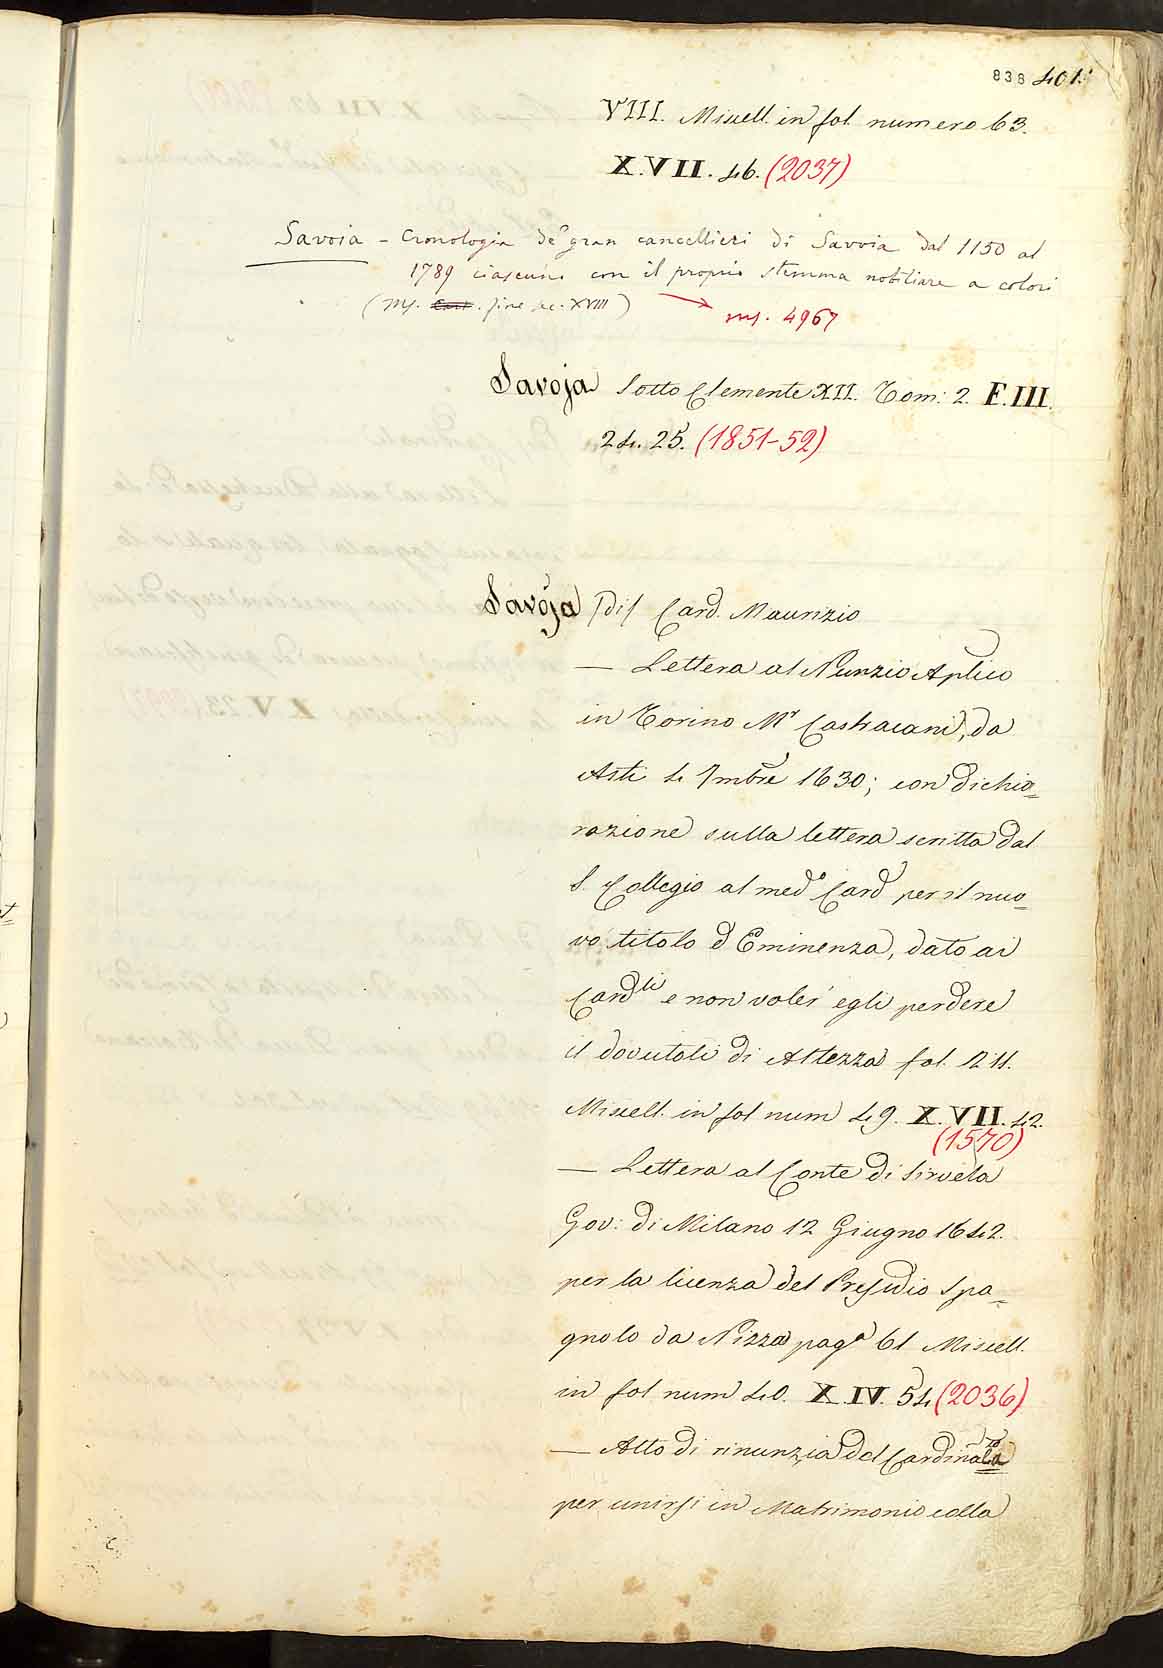 838 401.
VIII. Miscell. in fol. numero 63.
X.VII. 46. (2037)
Savoia - Cronologia de' gran cancellieri di Savoia dal 1150 al
1789 ciascuno con il proprio stemma nobiliare a colori
(ms. cart. fine sec. XVIII) → ms. 4967
Savoja Sotto Clemente XII. Tom: 2. E.III.
24. 25. (1851-52)
Savoja (di) Card. Maurizio
— Lettera al Nunzio Aplico
in Torino Mr Castracani, da
Asti 4 7mbre 1630; con dichia=
razione sulla lettera scritta dal
S. Collegio al medo Card per il nuo=
vo titolo d Eminenza, dato ai
Cardli e non voler egli perdere
il dovutoli di Altezza fol. 211.
Miscell. in fol num 49. X.VII. 42.
(1570)
— Lettera al Conte di Sirvela
Gov: di Milano 12 Giugno 1642.
per la licenza del Presidio Spa=
gnolo da Nizza paga 61 Miscell.
in fol num 40. X.IV. 54 (2036)
— Atto di rinunzia del Cardinalato
per unirsi in Matrimonio colla